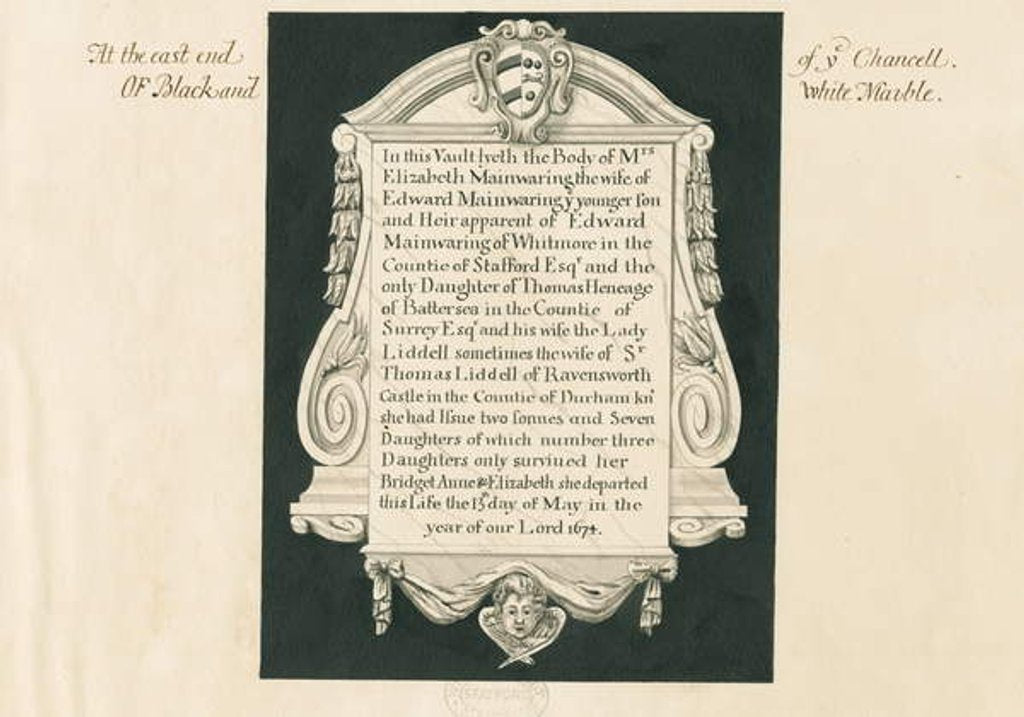 At the east end of yᵉ Chancell.
OF Black and White Marble.
In this Vault lyeth the Body of Mʳˢ
Elizabeth Mainwaring the wife of
Edward Mainwaring yᵉ younger ſon
and Heir apparent of Edward
Mainwaring of Whitmore in the
Countie of Stafford Esqʳ and the
only Daughter of Thomas Heneage
of Battersea in the Countie of
Surrey Esqʳ and his wife the Lady
Liddell sometimes the wife of Sʳ
Thomas Liddell of Ravensworth
Castle in the Countie of Durham knᵗ
she had Iſsue two ſonnes and Seven
Daughters of which number three
Daughters only surviued her
Bridget Anne & Elizabeth she departed
this Life the 13ᵗʰ day of May in the
year of our Lord 1674.